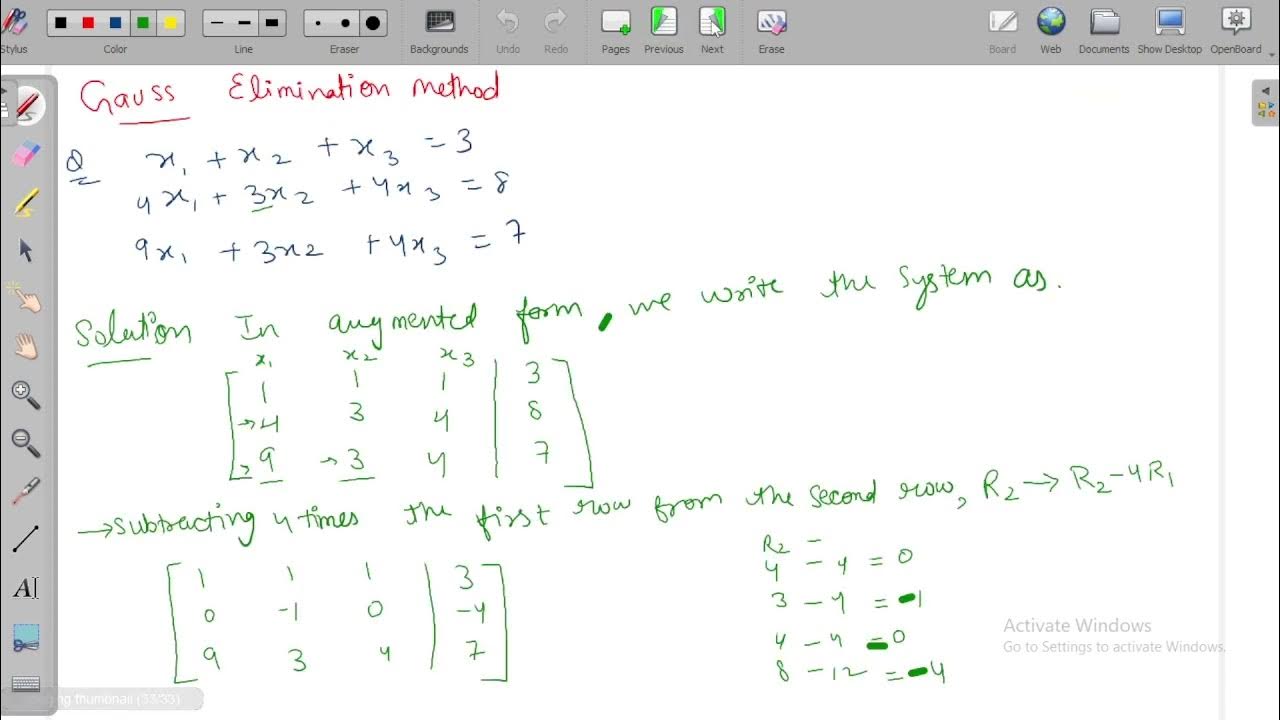 Stylus
Color
Line
Eraser
Backgrounds
Undo
Redo
Pages
Previous
Next
Erase
Board
Web
Documents
Show Desktop
OpenBoard
Gauss Elimination method
Q x₁ + x₂ + x₃ = 3
4x₁ + 3x₂ + 4x₃ = 8
9x₁ + 3x₂ + 4x₃ = 7
Solution In augmented form, we write the system as.
x₁ x₂ x₃
1 1 1 | 3
→4 3 4 | 8
→9 →3 4 | 7
→ Subtracting 4 times the first row from the second row, R₂ → R₂ - 4R₁
1 1 1 | 3
0 -1 0 | -4
9 3 4 | 7
R₂ =
4 - 4 = 0
3 - 4 = -1
4 - 4 = 0
8 - 12 = -4
A
Activate Windows
Go to Settings to activate Windows.
thumbnail (33/33)